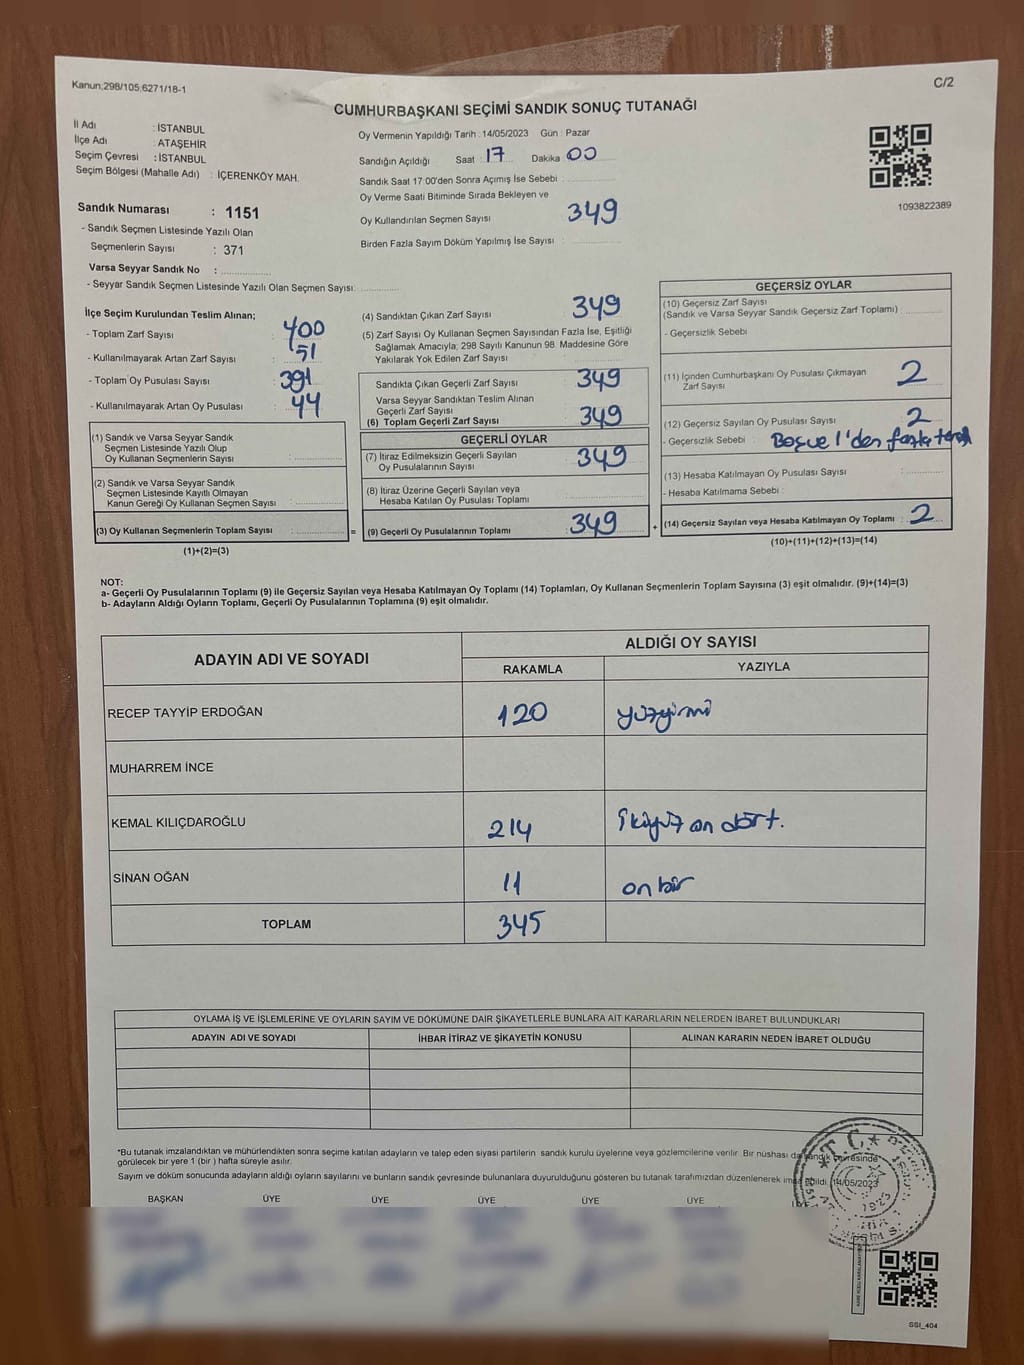 Kanun;298/105;6271/18-1
C/2
CUMHURBAŞKANI SEÇİMİ SANDIK SONUÇ TUTANAĞI
İl Adı : İSTANBUL
İlçe Adı : ATAŞEHİR
Seçim Çevresi : İSTANBUL
Seçim Bölgesi (Mahalle Adı) : İÇERENKÖY MAH.
Sandık Numarası : 1151
- Sandık Seçmen Listesinde Yazılı Olan
Seçmenlerin Sayısı : 371
Varsa Seyyar Sandık No :
- Seyyar Sandık Seçmen Listesinde Yazılı Olan Seçmen Sayısı:
Oy Vermenin Yapıldığı Tarih : 14/05/2023 Gün : Pazar
Sandığın Açıldığı Saat : 17 Dakika : 00
Sandık Saat 17:00'den Sonra Açımış İse Sebebi :
Oy Verme Saati Bitiminde Sırada Bekleyen ve
Oy Kullandırılan Seçmen Sayısı : 349
Birden Fazla Sayım Döküm Yapılmış İse Sayısı :
1093822389
İlçe Seçim Kurulundan Teslim Alınan;
- Toplam Zarf Sayısı : 400
- Kullanılmayarak Artan Zarf Sayısı : 51
- Toplam Oy Pusulası Sayısı : 391
- Kullanılmayarak Artan Oy Pusulası : 44
(1) Sandık ve Varsa Seyyar Sandık
Seçmen Listesinde Yazılı Olup
Oy Kullanan Seçmenlerin Sayısı :
(2) Sandık ve Varsa Seyyar Sandık
Seçmen Listesinde Kayıtlı Olmayan
Kanun Gereği Oy Kullanan Seçmen Sayısı :
(3) Oy Kullanan Seçmenlerin Toplam Sayısı : =
(1)+(2)=(3)
(4) Sandıktan Çıkan Zarf Sayısı : 349
(5) Zarf Sayısı Oy Kullanan Seçmen Sayısından Fazla İse, Eşitliği
Sağlamak Amacıyla; 298 Sayılı Kanunun 98. Maddesine Göre
Yakılarak Yok Edilen Zarf Sayısı :
Sandıkta Çıkan Geçerli Zarf Sayısı : 349
Varsa Seyyar Sandıktan Teslim Alınan
Geçerli Zarf Sayısı :
(6) Toplam Geçerli Zarf Sayısı : 349
GEÇERLİ OYLAR
(7) İtiraz Edilmeksizin Geçerli Sayılan
Oy Pusulalarının Sayısı : 349
(8) İtiraz Üzerine Geçerli Sayılan veya
Hesaba Katılan Oy Pusulası Toplamı :
(9) Geçerli Oy Pusulalarının Toplamı : 349 +
GEÇERSİZ OYLAR
(10) Geçersiz Zarf Sayısı
(Sandık ve Varsa Seyyar Sandık Geçersiz Zarf Toplamı) :
- Geçersizlik Sebebi :
(11) İçinden Cumhurbaşkanı Oy Pusulası Çıkmayan
Zarf Sayısı : 2
(12) Geçersiz Sayılan Oy Pusulası Sayısı : 2
- Geçersizlik Sebebi : 1'den fazla
(13) Hesaba Katılmayan Oy Pusulası Sayısı :
- Hesaba Katılmama Sebebi :
(14) Geçersiz Sayılan veya Hesaba Katılmayan Oy Toplamı : 2
(10)+(11)+(12)+(13)=(14)
NOT:
a- Geçerli Oy Pusulalarının Toplamı (9) ile Geçersiz Sayılan veya Hesaba Katılmayan Oy Toplamı (14) Toplamları, Oy Kullanan Seçmenlerin Toplam Sayısına (3) eşit olmalıdır. (9)+(14)=(3)
b- Adayların Aldığı Oyların Toplamı, Geçerli Oy Pusulalarının Toplamına (9) eşit olmalıdır.
ADAYIN ADI VE SOYADI
ALDIĞI OY SAYISI
RAKAMLA YAZIYLA
RECEP TAYYİP ERDOĞAN 120 yüzyirmi
MUHARREM İNCE
KEMAL KILIÇDAROĞLU 214 ikiyüz on dört.
SİNAN OĞAN 11 on bir
TOPLAM 345
OYLAMA İŞ VE İŞLEMLERİNE VE OYLARIN SAYIM VE DÖKÜMÜNE DAİR ŞİKAYETLERLE BUNLARA AİT KARARLARIN NELERDEN İBARET BULUNDUKLARI
ADAYIN ADI VE SOYADI İHBAR İTİRAZ VE ŞİKAYETİN KONUSU ALINAN KARARIN NEDEN İBARET OLDUĞU
*Bu tutanak imzalandıktan ve mühürlendikten sonra seçime katılan adayların ve talep eden siyasi partilerin sandık kurulu üyelerine veya gözlemcilerine verilir. Bir nüshası da sandık çevresinde
görülecek bir yere 1 (bir ) hafta süreyle asılır.
Sayım ve döküm sonucunda adayların aldığı oyların sayılarını ve bunların sandık çevresinde bulunanlara duyurulduğunu gösteren bu tutanak tarafımızdan düzenlenerek imza edildi. 14/05/2023
BAŞKAN ÜYE ÜYE ÜYE ÜYE ÜYE
T.C.
1923
SSI_404